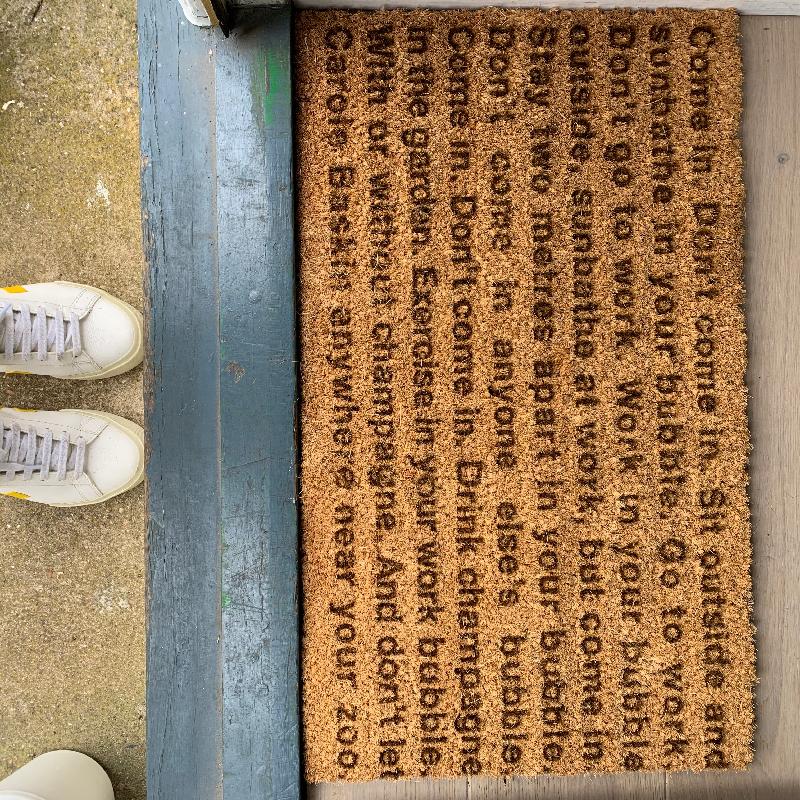 Come in. Don't come in. Sit outside and
sunbathe in your bubble. Go to work.
Don't go to work. Work in your bubble
outside, sunbathe at work, but come in.
Stay two metres apart in your bubble.
Don't come in anyone else's bubble.
Come in. Don't come in. Drink champagne
in the garden. Exercise in your work bubble.
With or without champagne. And don't let
Carole Baskin anywhere near your zoo.